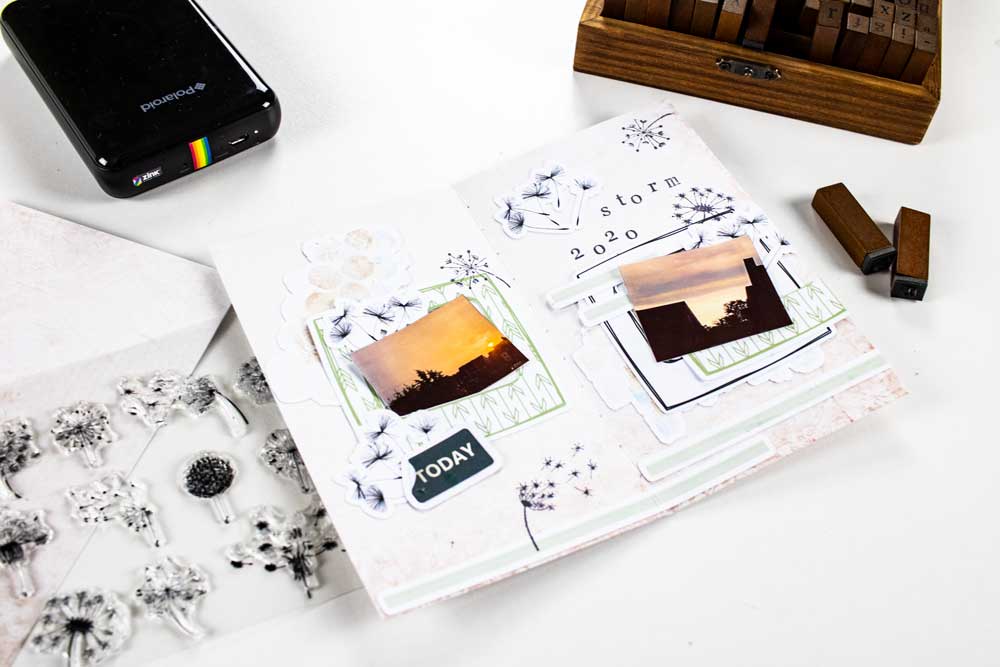 Polaroid
zink
storm
2020
TODAY
r
x z